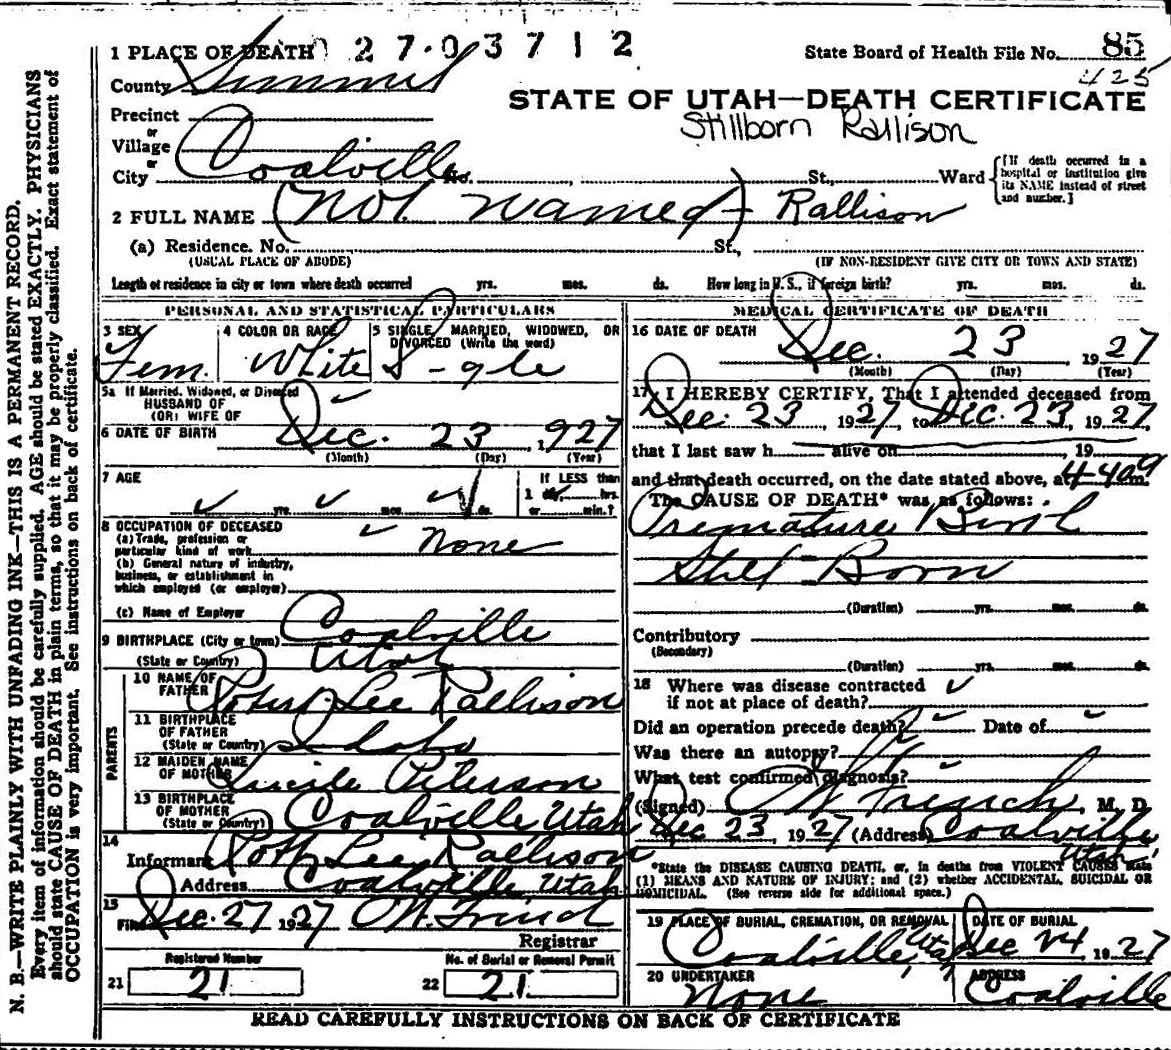 N. B.—WRITE PLAINLY WITH UNFADING INK—THIS IS A PERMANENT RECORD.
Every item of information should be carefully supplied. AGE should be stated EXACTLY. PHYSICIANS
should state CAUSE OF DEATH in plain terms, so that it may be properly classified. Exact statement of
OCCUPATION is very important. See instructions on back of certificate.
1 PLACE OF DEATH 2 7 0 3 7 1 2
State Board of Health File No. 85
425
County Summit
STATE OF UTAH—DEATH CERTIFICATE
Stillborn Rallison
Precinct
or
Village
or
City Coalville No. , St., Ward
[If death occurred in a
hospital or institution give
its NAME instead of street
and number.]
2 FULL NAME (Not Named) Rallison
(a) Residence. No. St.,
(USUAL PLACE OF ABODE) (IF NON-RESIDENT GIVE CITY OR TOWN AND STATE)
Length of residence in city or town where death occurred yrs. mos. ds. How long in U. S., if foreign birth? yrs. mos. ds.
PERSONAL AND STATISTICAL PARTICULARS
3 SEX Fem.
4 COLOR OR RACE White
5 SINGLE, MARRIED, WIDOWED, OR
DIVORCED (Write the word)
S-gle
5a If Married, Widowed, or Divorced
HUSBAND OF
(OR) WIFE OF
6 DATE OF BIRTH Dec. 23, 1927
(Month) (Day) (Year)
7 AGE yrs. mos. ds.
If LESS than
1 day, hrs.
or min.?
8 OCCUPATION OF DECEASED
(a) Trade, profession or
particular kind of work None
(b) General nature of industry,
business, or establishment in
which employed (or employer)
(c) Name of Employer
9 BIRTHPLACE (City or town) Coalville
(State or Country) Utah
PARENTS
10 NAME OF
FATHER Robert Lee Rallison
11 BIRTHPLACE
OF FATHER
(State or Country) Idaho
12 MAIDEN NAME
OF MOTHER Lucile Peterson
13 BIRTHPLACE
OF MOTHER
(State or Country) Coalville Utah
14
Informant Lee Rallison
Address Coalville Utah
15
Filed Dec. 27 1927
Registrar
Registered Number
21 21
No. of Burial or Removal Permit
22 21
MEDICAL CERTIFICATE OF DEATH
16 DATE OF DEATH
Dec. 23 1927
(Month) (Day) (Year)
17 I HEREBY CERTIFY, That I attended deceased from
Dec. 23, 1927, to Dec. 23, 1927,
that I last saw h alive on , 19
and that death occurred, on the date stated above, at 4 40 a m.
The CAUSE OF DEATH* was as follows:
Premature Birth
Still Born
(Duration) yrs. mos. ds.
Contributory
(Secondary)
(Duration) yrs. mos. ds.
18 Where was disease contracted
if not at place of death?
Did an operation precede death? Date of
Was there an autopsy?
What test confirmed diagnosis?
(Signed) M. D.
Dec 23, 1927 (Address) Coalville
Utah
*State the DISEASE CAUSING DEATH, or, in deaths from VIOLENT CAUSES state
(1) MEANS AND NATURE OF INJURY; and (2) whether ACCIDENTAL, SUICIDAL OR
HOMICIDAL. (See reverse side for additional space.)
19 PLACE OF BURIAL, CREMATION, OR REMOVAL
Coalville, Utah
DATE OF BURIAL
Dec 24 1927
20 UNDERTAKER
None
ADDRESS
Coalville
READ CAREFULLY INSTRUCTIONS ON BACK OF CERTIFICATE